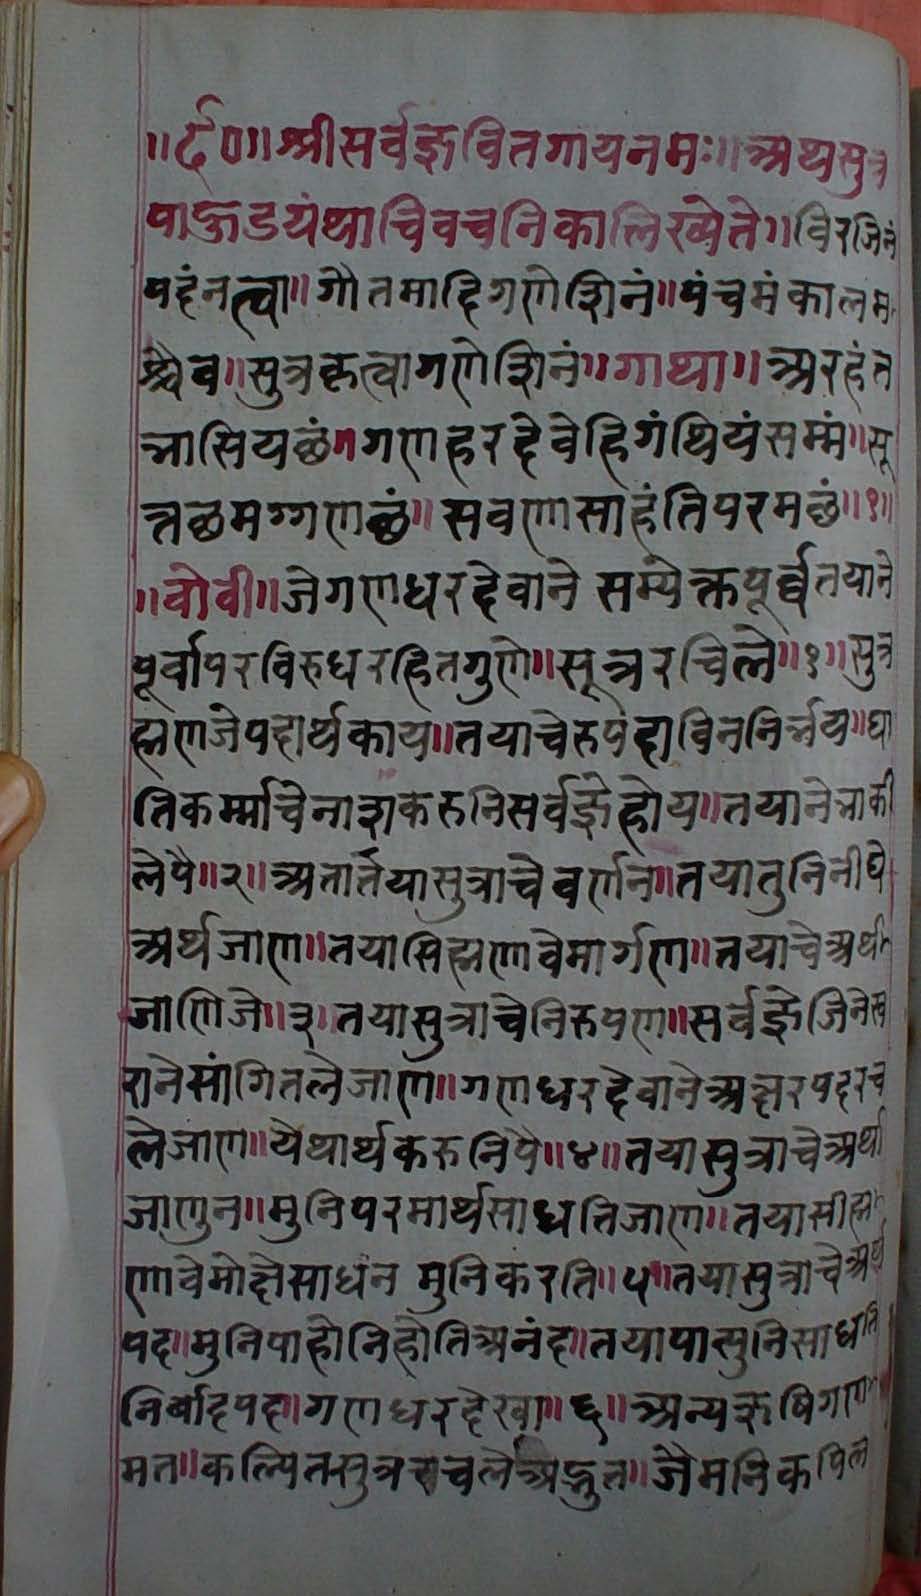 ॥र्द॰॥श्रीसर्वज्ञवितगायनमः॥अथसुत्र
पाऊडयंथाचिवचनिकालिख्येते॥विरजिनं
पदंनत्वा॥गौतमादिगणेशिनं॥पंचमंकालम
श्चैव॥सुत्रकृत्वागणेशिनं॥गाथा॥अरहंत
भासियछं॥गणहरदेवेहिगंथियंसम्मं॥सू
त्तछमग्गणछं॥सवणसाहंतिपरमछं॥१॥
॥वोवी॥जेगणधरदेवाने सम्येक्तपूर्व्वतयाने
पूर्वापरविरुधरहितगुणे॥सूत्ररचिले॥१॥सुत्र
ह्मणजेपदार्थकाय॥तयाचेरुपदाविननिर्नय॥घा
तिकर्म्माचेनाशकरुनिसर्वज्ञेहोय॥तयानेभाकी
लेपै॥२॥अतार्तयासुत्राचेवर्णन॥तयातुनिनीघे
अर्थजाण॥तयासिह्मणवेमार्गण॥तयाचेअर्थ
जाणिजे॥३॥तयासुत्राचेनिरुपण॥सर्वज्ञेजिनेस्व
रानेसांगितलेजाण॥गणधरदेवानेअक्षरपदरच
लेजाण॥येथार्थकरुनिपै॥४॥तयासुत्राचेअर्था
जाणुन॥मुनिपरमार्थसाधतिजाण॥तयासीह्म
णवेमोक्षेसाधन मुनिकरति॥५॥तयासुत्राचेअर्थ
पद॥मुनिपाहोनिहोतिअनंद॥तयापासुनिसाधति
निर्बादपद॥गणधरदेखा॥६॥अन्यऋषिगण
मत॥कल्पितसुत्ररचलेअद्भुत॥जैमनिकपिल